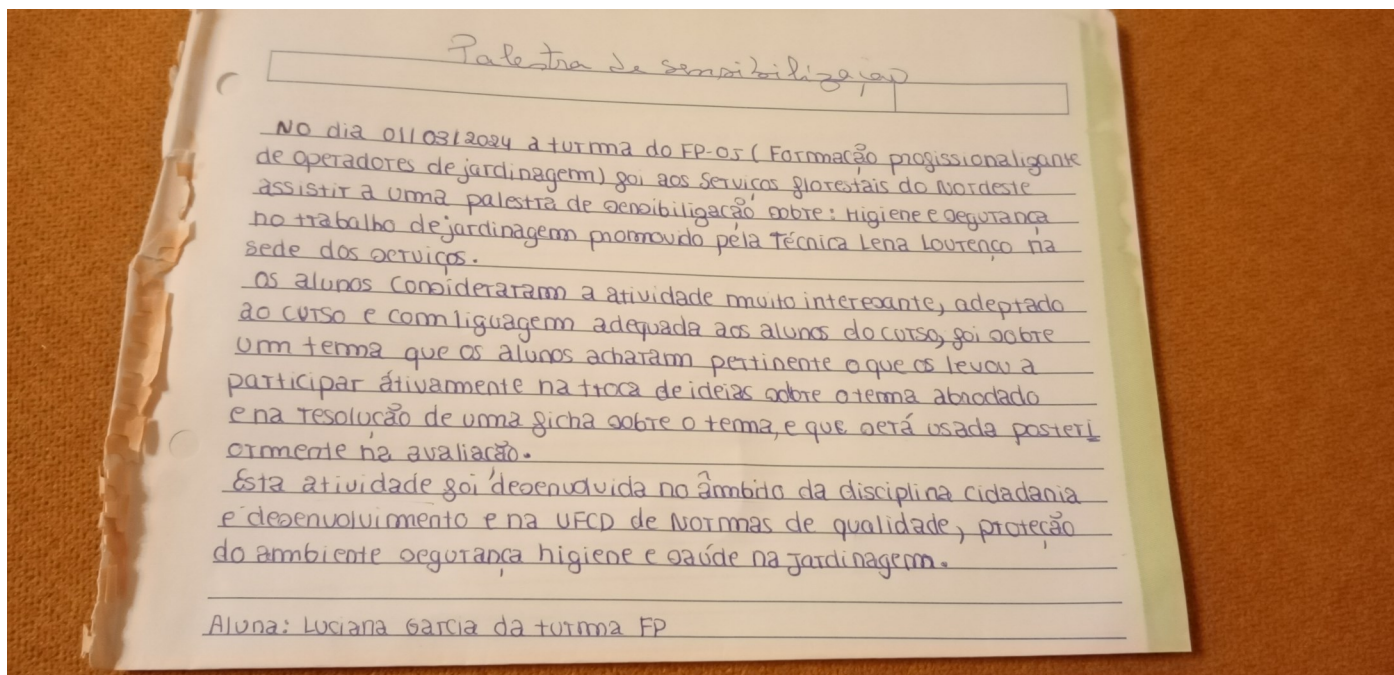 Palestra de sensibilização
No dia 01/03/2024 a turma do FP-05 (Formação profissionalizante
de operadores de jardinagem) foi aos Serviços florestais do Nordeste
assistir a uma palestra de sensibilização sobre: Higiene e segurança
no trabalho de jardinagem promovido péla Técnica Lena Lourenço na
sede dos serviços.
Os alunos consideraram a atividade muito interesante, adeptado
ao curso e com liguagem adequada aos alunos do curso, foi sobre
um tema que os alunos acharam pertinente o que os levou a
participar átivamente na troca de ideias sobre o tema abnodado
e na resolução de uma ficha sobre o tema, e que será usada posteri
ormente na avaliação.
Esta atividade foi desenvolvida no âmbito da disciplina cidadania
e desenvolvimento e na UFCD de Normas de qualidade, proteção
do ambiente segurança higiene e saúde na jardinagem.
Aluna: Luciana Garcia da turma FP